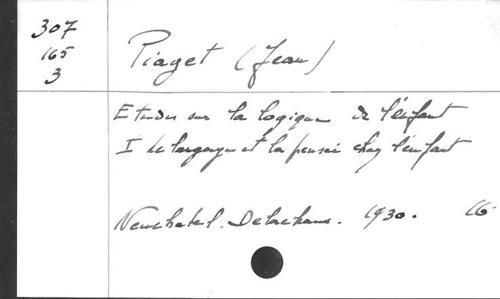 307
165
3
Piaget (Jean)
Etudes sur la logique de l'enfant
I Le langage et la pensée chez l'enfant
Neuchatel. Delachaux. 1930. 16